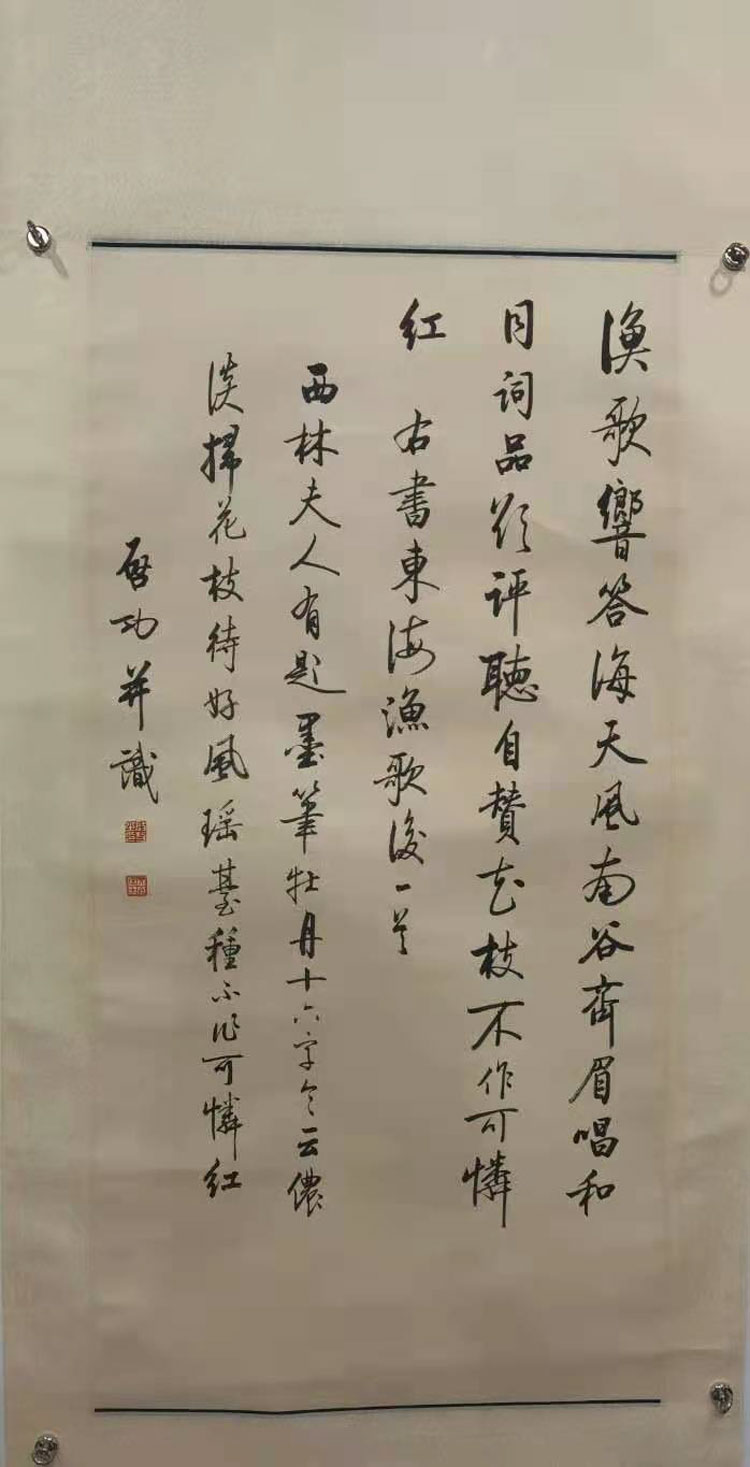 漁歌響答海天風南谷齊眉唱和
同詞品欲評聽自贊花枝不作可憐
紅 右書東海漁歌後一首
西林夫人有題墨筆牡丹十六字令云儂
淡掃花枝待好風瑶臺種不作可憐紅
啓功并識